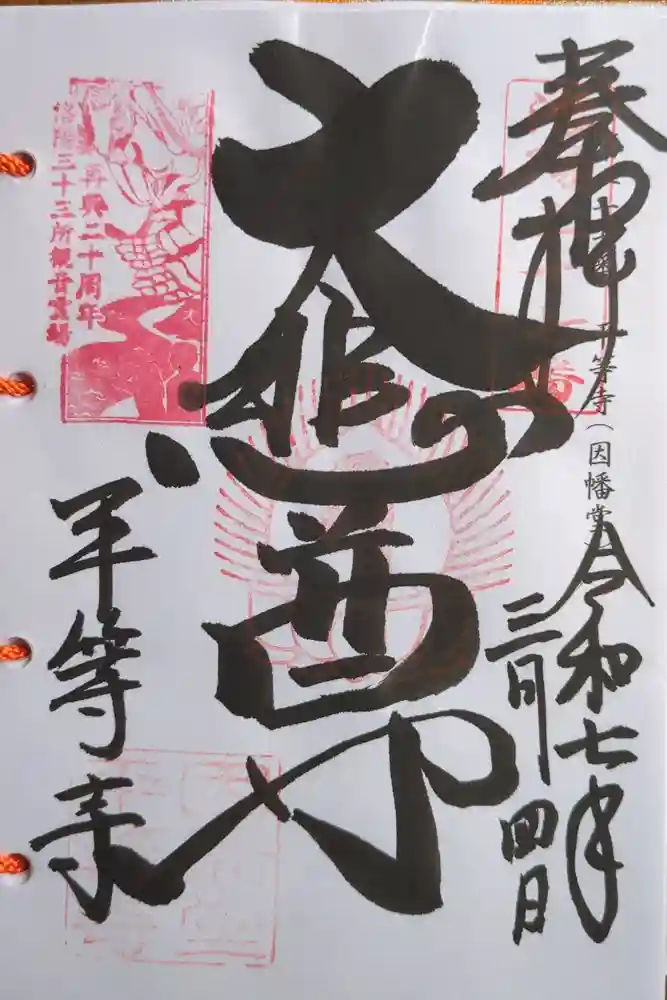 奉拝
平等寺（因幡堂）
令和七年
三月四日
大悲尊
再興二十周年
洛陽三十三所観音霊場
平等寺